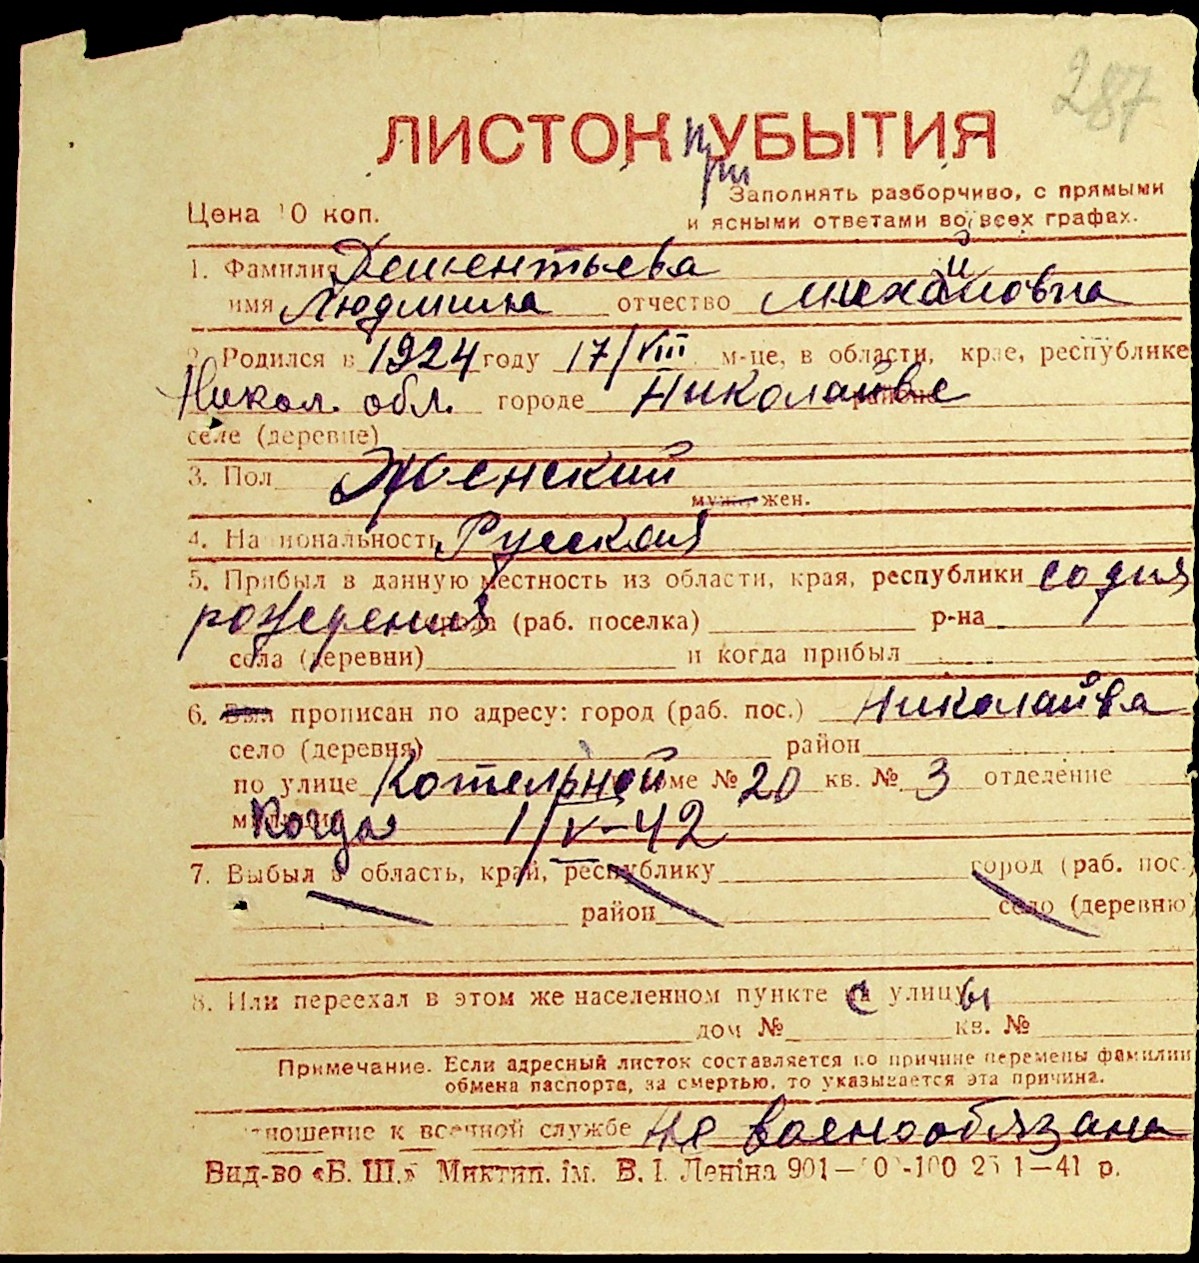 287
ЛИСТОК при УБЫТИЯ
Цена 10 коп.
Заполнять разборчиво, с прямыми
и ясными ответами во всех графах.
1. Фамилия Дементьева
имя Людмила отчество Михайловна
2. Родился в 1924 году 17/VIII м-це, в области, крае, республике
Никол. обл. городе Николайве районе
селе (деревне)
3. Пол Женский
муж., жен.
4. Национальность Русская
5. Прибыл в данную местность из области, края, республики со дня
рождения города (раб. поселка) р-на
села (деревни) и когда прибыл
6. Был прописан по адресу: город (раб. пос.) Николайва
село (деревня) район
по улице Котельной доме № 20 кв. № 3 отделение
милиции Когда 1/V-42
7. Выбыл в область, край, республику город (раб. пос.)
район село (деревню)
8. Или переехал в этом же населенном пункте с улицы
дом № кв. №
Примечание. Если адресный листок составляется по причине перемены фамилии
обмена паспорта, за смертью, то указывается эта причина.
Отношение к военной службе не военообязана
Вид-во «Б. Ш.» Миктип. ім. В. І. Леніна 901— 1—41 р.